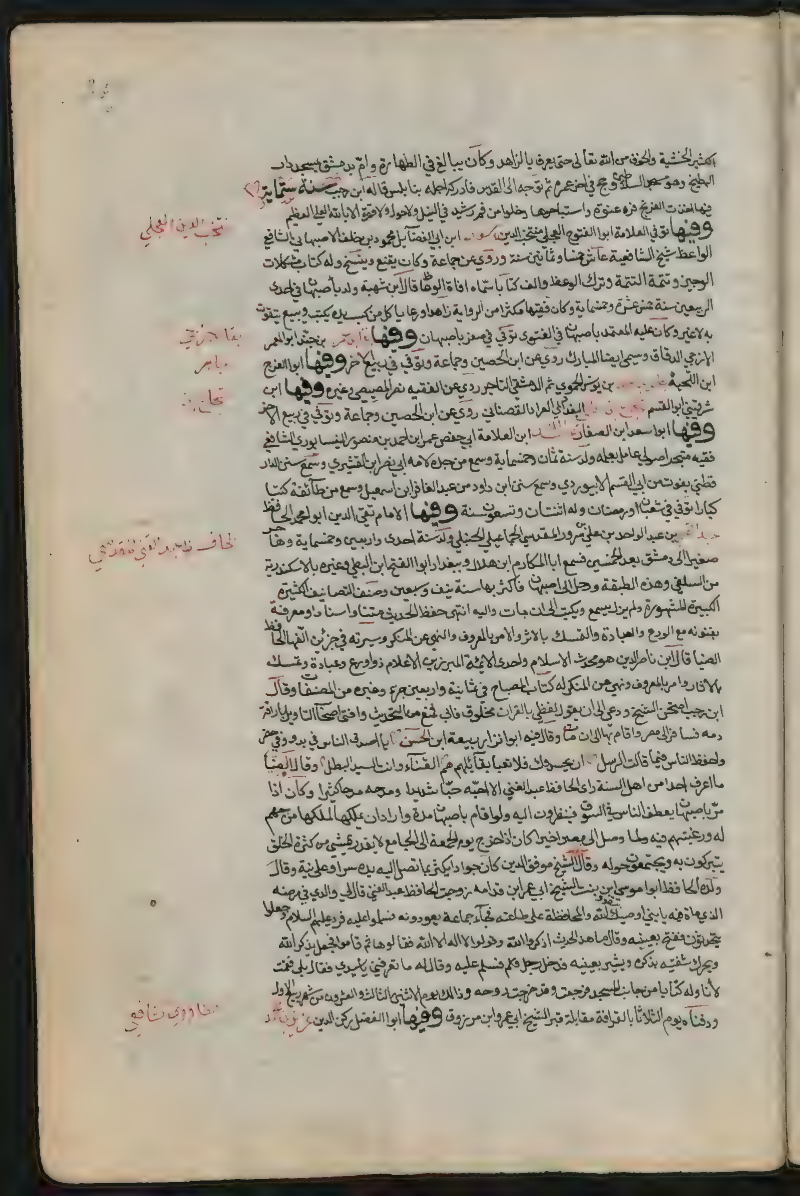 الكثير الخشية والخوف من الله تعالى حتى يعرف بالزاهد وكان يبالغ في الطهارة وام بدمشق بمسجد دار
البطيخ وهو مسجد السلاليين وحج في اخر عمره ثم توجه الى القدس فادركه اجله بنابلس قاله ابن رجب سنة ستماية
فيها اخذت الفرنج فوه عنوة واستباحوها دخلوا من فم رشيد في النيل ولا حول ولا قوة الا بالله العلي العظيم
وفيها توفي العلامة ابو الفتوح العجلي منتخب الدين اسعد ابن ابي الفضايل محمود بن خلف الاصبهاني الشافعي
الواعظ شيخ الشافعية عاش خمسا وثمانين سنة وروي عن جماعة وكان يقنع وينسخ وله كتاب مشكلات
الوجيز وتتمة التتمة وترك الوعظ والف كتابا سماه افات الوعاظ قال ابن شهبة ولد باصبهان في احدى
الربيعين سنة خمس عشرة وخمسماية وكان فقيها مكثرا من الرواية زاهدا ورعا ياكل من كسب يده يكتب ويبيع يتقوت
به لا غير وكان عليه المعتمد باصبهان في الفتوى توفي في صفر باصبهان وفيها بن جند ابو المعمر
الازجي الدقاق وسمي ايضا المبارك روي عن ابن الحصين وجماعة وتوفي في ربيع الاخر وفيها ابو الفرج
ابن اللحية بن يونس الحموي ثم الدمشقي التاجر روي عن الفقيه نصر المصيصي وغيره وفيها ابن
شرقيني ابو القسم البغدادي الفراد القصباني روي عن ابن الحصين وجماعة وتوفي في ربيع الاخر
وفيها ابو سعد ابن الصفار ابن العلامة ابي حفص عمر بن احمد بن منصور النيسابوري الشافعي
فقيه متبحر اصولي عامل بعلمه ولد سنة ثمان وخمسماية وسمع من جده لامه ابي نصر ابن القشيري وسمع سنن الدار
قطني بفوت من ابي القسم الابيوردي وسمع سنن ابي داود من عبد الغافر ابن اسمعيل وسمع من طائفة كتبا
كبارا توفي في شعبان او رمضان وله اثنتان وتسعون سنة وفيها الامام تقي الدين ابو محمد الحافظ
عبد الغني بن عبد الواحد بن علي بن سرور المقدسي الجماعيلي الحنبلي ولد سنة احدى واربعين وخمسماية وهاجر
صغيرا الى دمشق بعد الخمسين فسمع ابا المكارم ابن هلال وببغداد ابو الفتح ابن البطي وغيره بالاسكندرية
من السلفي وهذه الطبقة ورحل الى اصبهان فاكثر بها سنة نيف وسبعين وصنف التصانيف الكثيرة
الكبيرة المشهورة ولم يزل يسمع ويكتب الى ان مات واليه انتهى حفظ الحديث متنا واسنادا ومعرفة
بفنونه مع الورع والعبادة والتمسك بالاثر والامر بالمعروف والنهي عن المنكر وسيرته في جزئين الفها الحافظ
الضيا قال ابن ناصر الدين هو محدث الاسلام واحد الائمة المبرزين الاعلام ذو ورع وعبادة وتمسك
بالاثار وامر بالمعروف ونهي عن المنكر له كتاب المصباح في ثمانية واربعين جزء وغيره من المصنفات وقال
ابن رجب امتحن الشيخ ودعي الى ان يقول لفظي بالقران مخلوق فابى فمنع من التحديث وافتى اصحاب التاويل باراقة
دمه فسافر الى مصر واقام بها الى ان مات وقال فيه ابو نزار ربيعة ابن الحسن يا اصدق الناس في بدو وفي حضر
واحفظ الناس فيما قالت الرسل ان يحسدوك فلا تعبا بقايلهم هم الغثاء وانت السيد البطل وقال الضيا
ما اعرف احدا من اهل السنة راى الحافظ عبد الغني الا احبه حبا شديدا ومدحه مدحا كثيرا وكان اذا
مر باصبهان يصطف الناس في السوق فينظرون اليه ولو اقام باصبهان مدة واراد ان يملكها لملكها من حبهم
له ورغبتهم فيه ولما وصل الى مصر اخيرا كان اذا خرج يوم الجمعة الى الجامع لا يقدر يمشي من كثرة الخلق
يتبركون به ويجتمعون حوله وقال الشيخ موفق الدين كان جوادا يكثر بما تصل اليه يده سرا وعلانية وقال
ولده الحافظ ابو موسى ابن بنت الشيخ ابي عمر ابن قدامه زوجت الحافظ عبد الغني قال لي والدي في مرضه
الذي مات فيه يا بني اوصيك بتقوى الله والمحافظة على طاعته فجاء جماعة يعودونه فسلموا عليه فرد عليهم السلام وجعلوا
يتحدثون ففتح بعينيه وقال ما هذا الحديث اذكروا الله وقولوا لا اله الا الله فقالوها ثم قاموا فجعل يذكر الله
ويحرك شفتيه بذكره ويشير بعينيه فدخل رجل فكلم فسلم عليه وقال له ما تعرفني يا سيدي فقال بلى فقمت
لا ناوله كتابا من جانب المسجد فرجعت وقد خرجت روحه وذلك يوم الاثنين الثالث والعشرون من شهر ربيع الاول
ودفناه يوم الثلاثا بالقرافة مقابلة قبر الشيخ ابي عمرو ابن مرزوق وفيها ابو الفضل ركن الدين عزيز بن محمد
منتخب الدين العجلي
الحافظ عبد الغني المقدسي
شافعي